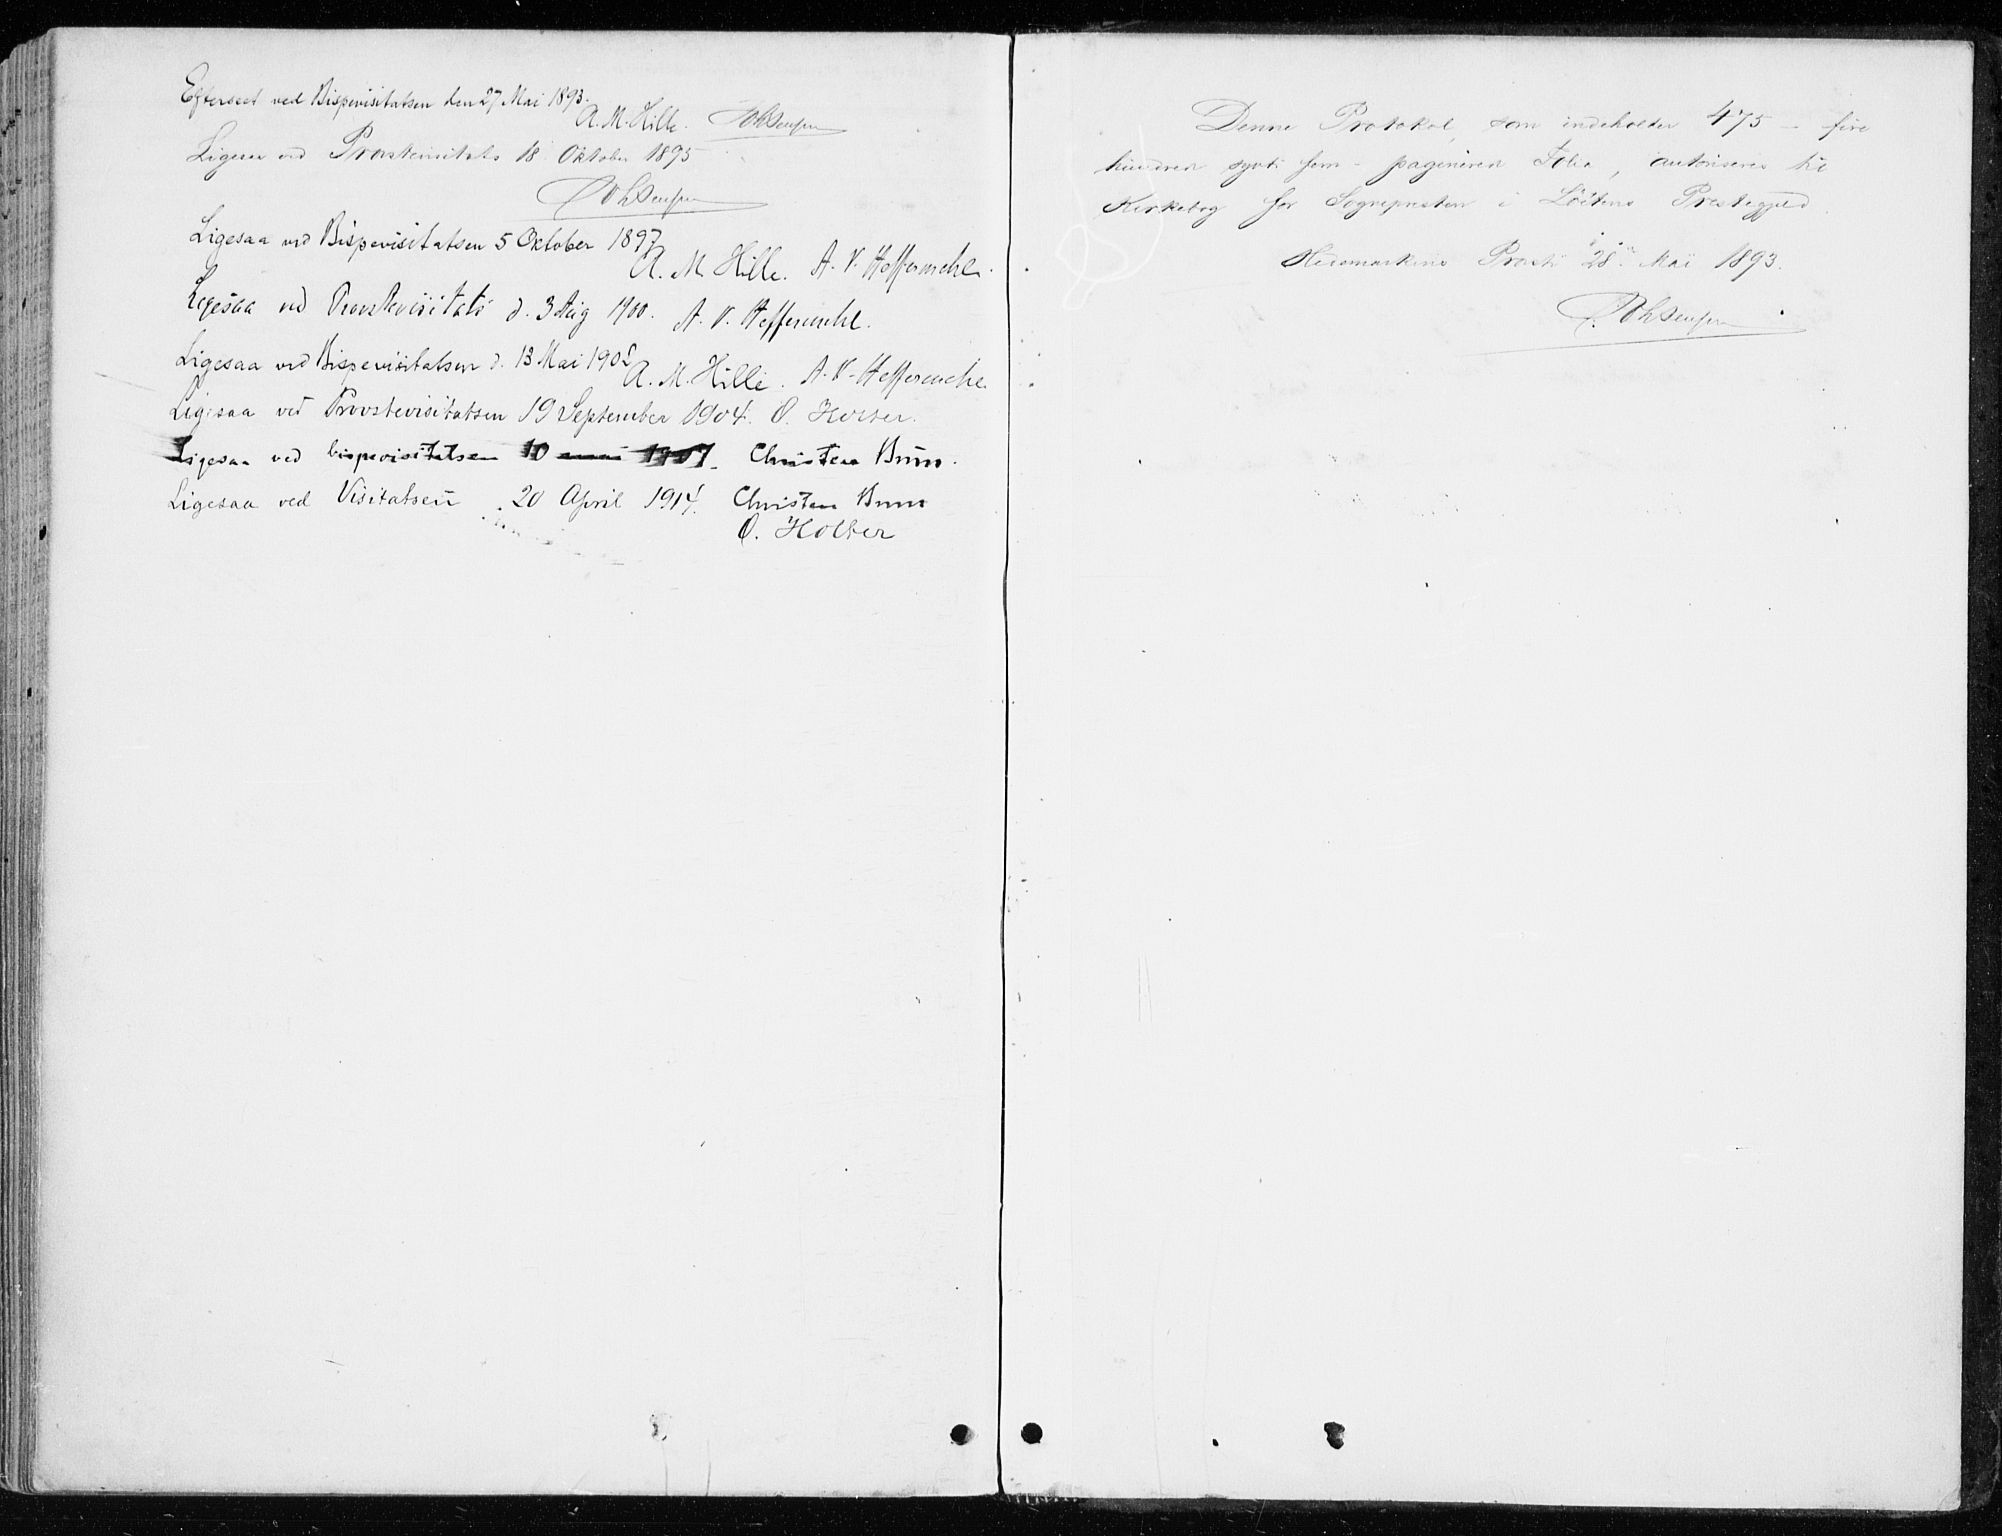 Efterseet ved Bispevisitatsen den 27 Mai 1893.
A. M. Hille.
Ligesaa ved Provstevisitats 18 Oktober 1895
Ligesaa ved Bispevisitatsen 5 Oktober 1897
A. M. Hille. A. V. Heffermehl.
Ligesaa ved Provstevisitats d. 3 Aug 1900. A. V. Heffermehl.
Ligesaa ved Bispevisitatsen d. 13 Mai 1902
A. M. Hille. A. V. Heffermehl
Ligesaa ved Provstevisitatsen 19 September 1904. O. Holter.
Ligesaa ved bispevisitatsen 10 mai 1907. Christen Brun.
Ligesaa ved Visitatsen 20 April 1914. Christen Brun
O. Holter
Denne Protokol, som indeholder 475 - fire
hundred sytti fem - paginered Folia, autoriseres til
Kirkebog for Sognepresten i Løitens Prestegjeld.
Hedemarkens Provsti 28 Mai 1893.